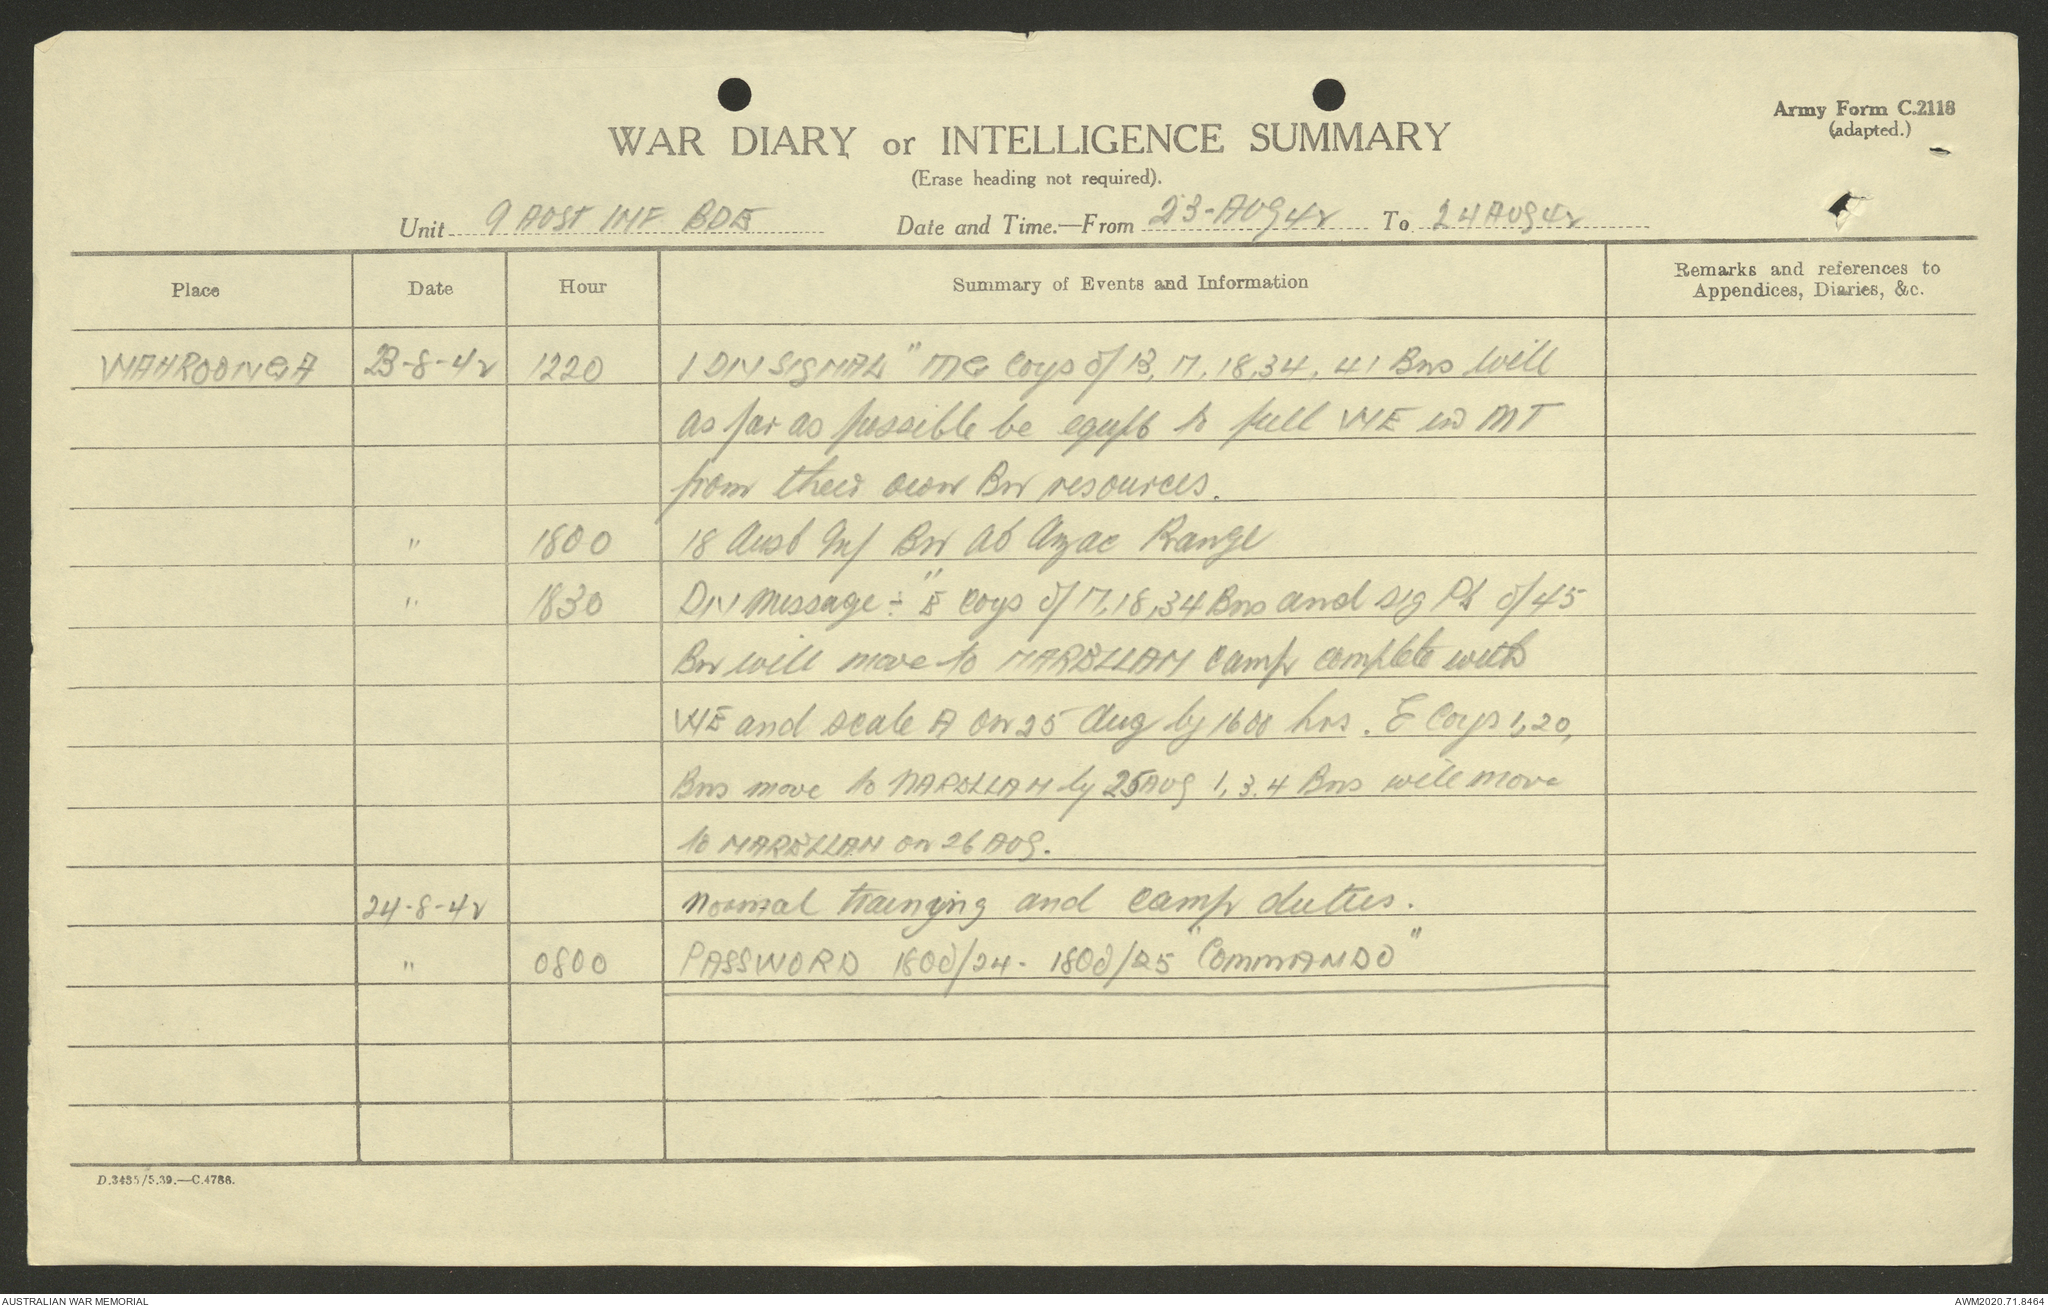 Army Form C.2118
(adapted.)
WAR DIARY or INTELLIGENCE SUMMARY
(Erase heading not required).
Unit 9 AUST INF BDE Date and Time.—From 23-AUG 42 To 24 AUG 42
Place Date Hour Summary of Events and Information Remarks and references to Appendices, Diaries, &c.
WAHROONGA 23-8-42 1220 1 DIV SIGNAL "MG Coys of 13, 17, 18, 34, 41 Bns will
as far as possible be equipt to full WE in MT
from their own Bn resources.
" 1800 18 Aust Inf Bn at Anzac Range
" 1830 DIV Message :- "E Coys of 17, 18, 34 Bns and Sig Pl of 45
Bn will move to NARELLAN Camp complete with
WE and scale A on 25 Aug by 1600 hrs. E Coys 1, 20,
Bns move to NARELLAN by 25 AUG 1, 3. 4 Bns will move
to NARELLAN on 26 AUG.
24-8-42 Normal training and camp duties.
" 0800 PASSWORD 1800/24 - 1800/25 "COMMANDO"
D.3435/5.39.—C.4786.
AUSTRALIAN WAR MEMORIAL AWM2020.71.8464